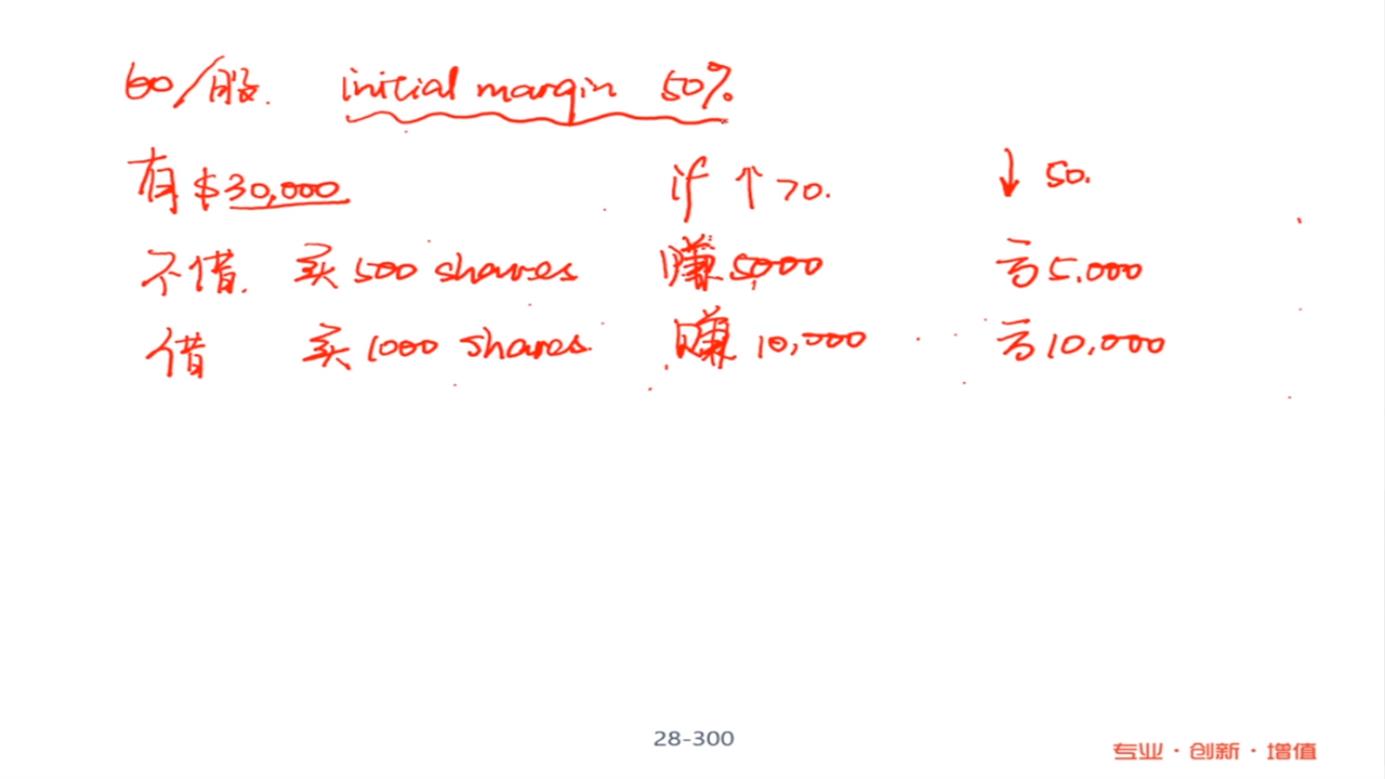 60/股. initial margin 50%.
有 $30,000. if ↑ 70. ↓ 50.
不借. 买 500 shares 赚 5,000 亏 5,000
借 买 1000 shares. 赚 10,000 亏 10,000
28-300
专业·创新·增值